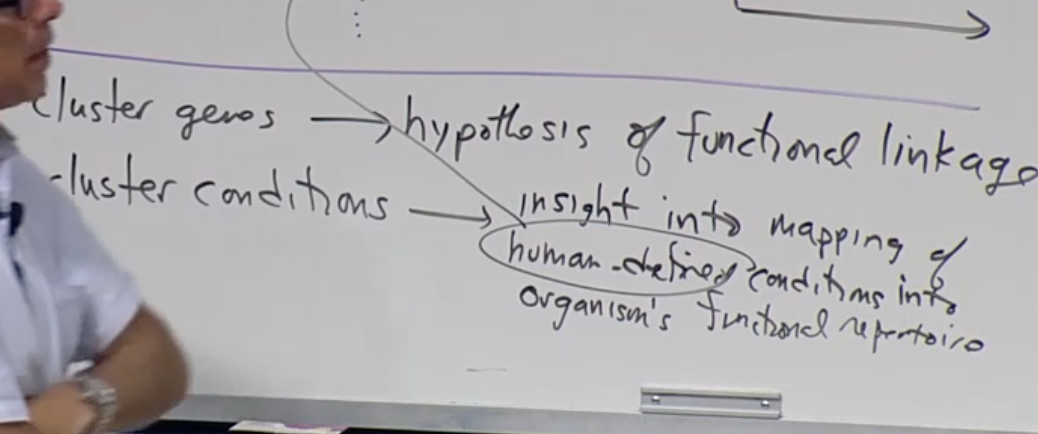 cluster genes → hypothesis of functional linkage
cluster conditions → insight into mapping of
human-defined conditions into
organism's functional repertoire